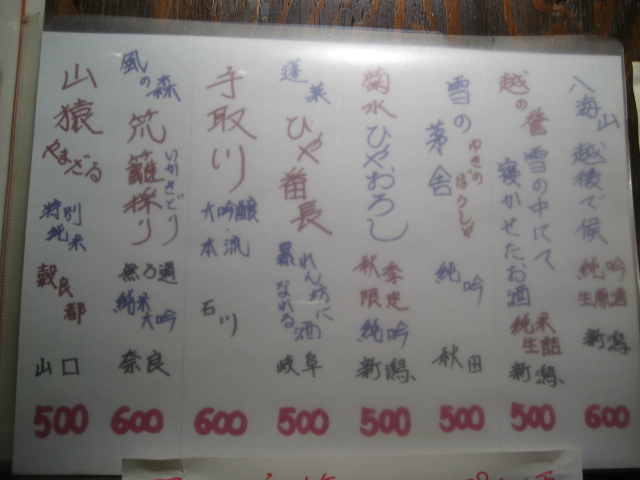 八海山
越後で候
純吟
生原酒
新潟
600
越の誉
雪の中にて
寝かせたお酒
純米
生詰
新潟、
500
雪の
茅舎
ゆきの
ぼうしゃ
純吟
秋田
500
菊水
ひやおろし
秋季
限定
純吟
新潟、
500
蓬莱
ひや番長
暴れん坊に
なれる酒
岐阜
500
手取川
大吟醸
本流
石川
600
風の森
笊籬採り
いかきどり
無ろ過
純米
大吟
奈良
600
山猿
やまざる
特別
純米
穀良都
山口
500